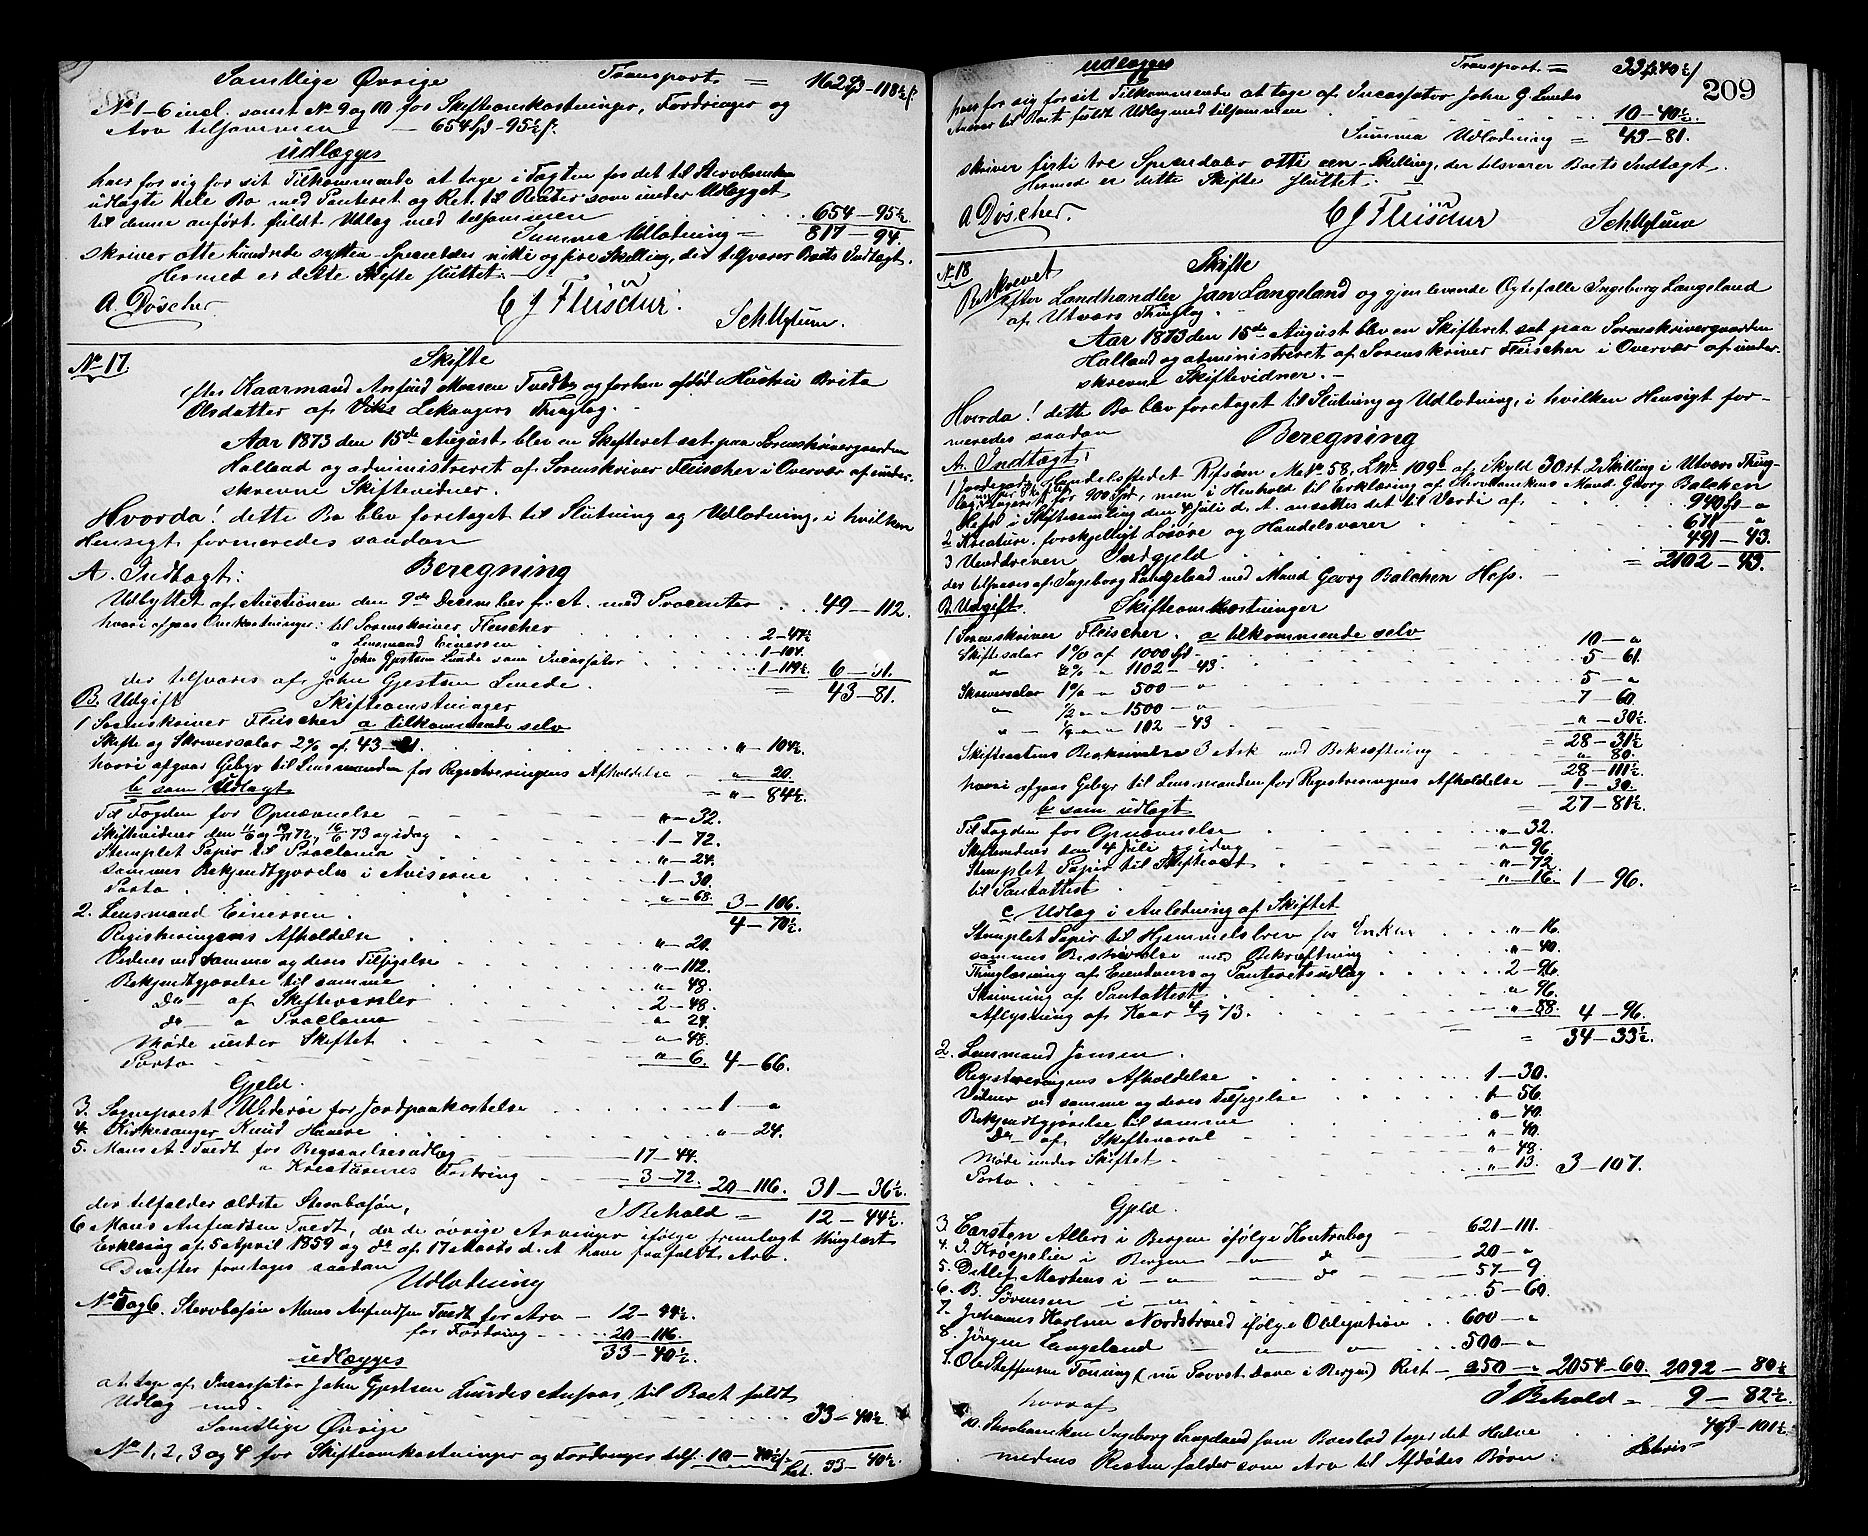 Samtlige Øvrige Transport = 162 Sp - 118½ s.
No 1-6 incl. samt No 9 og 10 for Skifteomkostninger, Fordringer og
Arv tilsammen — 654 Sp - 95½ s.
udlægges
hver for sig for sit Tilkommende at tage i Fogten for det til Stervbenken
udlagte hele Bo med Panteret og Ret til Renter som under Udlægget
til denne anført fuldt Udlæg med tilsammen 654 - 95½
Summa Udlodning = 817 - 94.
skriver otte hundrede sytten Speciedaler nitti og fire Skilling, der tilsvarer Boets Indtægt.
Hermed er dette Skifte sluttet. —
A. Döscher. C J Fleischer. Sch Uglum.
No 17. Skifte
efter Kaarmand Anfind Monsen Tvedt og forhen afdød Hustru Brita
Olsdatter af Viks Lekangers Thinglag. -
Aar 1873 den 15de August blev en Skifteret sat paa Sorenskrivergaarden
Halland og administreret af Sorenskriver Fleischer i Overvær af under-
skrevne Skiftevidner.
Hvorda! dette Bo blev foretaget til Slutning og Udlodning, i hvilken
Hensigt formeredes saadan
A. Indtægt: Beregning
Udbyttet af Auctionen den 9de December f. A. med Procenter . . 49 - 112.
hvori afgaar Omkostninger: til Sorenskriver Fleischer 2 - 47½
" Lensmand Einersen 1 - 104.
" John Gjestsen Lunde som Incassator 1 - 119½. 6 - 31.
der tilsvares af John Gjestsen Lunde. = 43 - 81.
B. Udgift Skifteomkostninger
1 Sorenskriver Fleischer a tilkommende selv
Skifte og Skriversalar 2% af 43 - 81. " - 104½.
hvori afgaar Gebyr til Lensmanden for Registreringens Afholdelse - " - 20.
b som Udlagt = " - 84½.
Til Fogden for Opnævnelse " - 32.
Skiftevidner den 11/6 og 19/11 72, 16/6 73 og idag 1 - 72.
Stemplet Papir til Proclama " - 24.
sammes Bekjendtgjørelse i Aviserne 1 - 30.
Porto " - 68. 3 - 106.
2. Lensmand Einersen. 4 - 70½.
Registreringens Afholdelse " - 20.
Vidner ved samme og deres Tilsigelse " - 112.
Bekjendtgjørelse til samme " - 48.
Do — af Skiftevarsler 2 - 48.
do — " Proclama " - 24.
Møde under Skiftet " - 48.
Porto " - 6. 4 - 66.
Gjeld.
3. Sogneprest Wederöe for Jordpaakastelse 1 - "
4. Kirkesanger Knud Hauere " - 24.
5. Mons A. Tvedt for Begravelsesudlæg 17 - 44.
" Kreaturenes Fodring 3 - 72. 20 - 116. 31 - 36½.
der tilfalder ældste Stervbosøn, I Behold = 12 - 44½.
6 Mons Anfindsen Tvedt, da de øvrige Arvinger ifølge fremlagt thinglæst
Erklæring af 5 April 1859 og do af 17 Marts d. A. have frafaldt Arv.
Derefter foretages saadan
Udlodning
No 5 og 6. Stervbosøn Mons Anfindsen Tvedt for Arv - 12 - 44½.
for Fordring 20 - 116.
udlægges 33 - 40½.
at tage af Incassator John Gjestsen Lundes Ansvar, til Boet fuldt
Udlæg med 33 - 40½
Samtlige Øvrige
No 1, 2, 3 og 4 for Skifteomkostninger og Fordringer tils. 10 - 40½ s. Lat. 33 - 40½.
udlægges Transport = 33 Sp 40½ s 209
hver for sig for sit Tilkommende at tage af Incassator John G. Lundes
Ansvar til Boet fuldt Udlæg med tilsammen 10 - 40½.
Summa Udlodning = 43 - 81.
skriver firti tre Speciedaler otti een Skilling, der tilsvarer Boets Indtægt.
Hermed er dette Skifte sluttet. -
A Döscher. C J Fleischer Sch Uglum
No 18 Skifte
Beskrevet
efter Landhandler Jan Langeland og gjenlevende Ægtefælle Ingeborg Langeland
af Utværs Thinglag. -
Aar 1873 den 15de August blev en Skifteret sat paa Sorenskrivergaarden
Halland og administreret af Sorenskriver Fleischer i Overvær af under-
skrevne Skiftevidner. -
Hvorda! dette Bo blev foretaget til Slutning og Udlodning, i hvilken Hensigt for-
meredes saadan
Beregning
A. Indtægt:
1 Jordegods, Handelsstedet Risöen M. No 58, L. No 109b af Skyld 3 ort 2 Skilling i Utvær Thing-
lag, for 900 Spd, men i Henhold til Erklæring af Stervbenkens Mand Georg Balchen
Hess i Skiftesamling den 4 Juli d. A. ansattes det til Værdi af 940 Sp - "
2 Kreature, forskjelligt Løsøre og Handelsvarer 671 - "
3 Uinddreven Indgjeld 491 - 43.
der tilsvares af Ingeborg Langeland med Mand Georg Balchen Hess. = 2102 - 43.
B. Udgift. Skifteomkostninger
1 Sorenskriver Fleischer. a tilkommende selv
Skiftesalar 1% af 1000 Spd 10 - "
" ½% " 1102 - 43. 5 - 61.
Skriversalar 1% " 500 - " 5 - "
" ½ " " 1500 - " 7 - 60.
" ¼ " " 102 - 43 " - 30½.
= 28 - 31½
Skifteactens Beskrivelse 3 Ark med Bekræftning " 80.
28 - 111½.
hvori afgaar Gebyr til Lensmanden for Registreringens Afholdelse 1 - 30.
b som udlagt = 27 - 81½.
Til Fogden for Opnævnelse " - 32.
Skiftevidner den 4 Juli og idag " - 96.
Stemplet Papir til Skifteact " - 72.
til Pantattest " - 16. 1 - 96.
c Udlæg i Anledning af Skiftet
Stemplet Papir til Hjemmelsbrev for Enken " - 16.
sammes Beskrivelse med Bekræftning " - 40.
Thinglæsning af Eiendoms og Panteretsudlæg 2 - 96.
Skrivning af Pantattest " 96.
Aflysning af Kaar 4/7 73. " - 88. 4 - 96.
= 34 - 33½.
2. Lensmand Jensen.
Registreringens Afholdelse 1 - 30.
Vidner ved samme og deres Tilsigelse 1 - 56.
Bekjendtgjørelse til samme " - 40.
Do — af Skiftevarsel " - 40.
Møde under Skiftet " - 48.
Porto " - 13. 3 - 107.
Gjeld.
3. Carsten Allers i Bergen ifølge Kontrabog 621 - 111.
4. J. Kröepelien i Bergen — " do 20 - "
5. Detlef Martens i — " — " do 57 - 9
6. B. Sørensen i — " 5 - 60.
7. Johannes Karlsen Nordstrand ifølge Obligation 600 - "
8. Jörgen Langeland " " 500 - "
9. Ole Steffensen Tonning (nu Provst Dave i Bergen) Rest - 250 - " 2054 - 60. 2092 - 80½
hvoraf I Behold = 9 - 82½.
10. Stervbenken Ingeborg Langeland som Boeslod tager det Halve 4 Sp - 101½
medens Resten falder som Arv til Afdødes Børn: